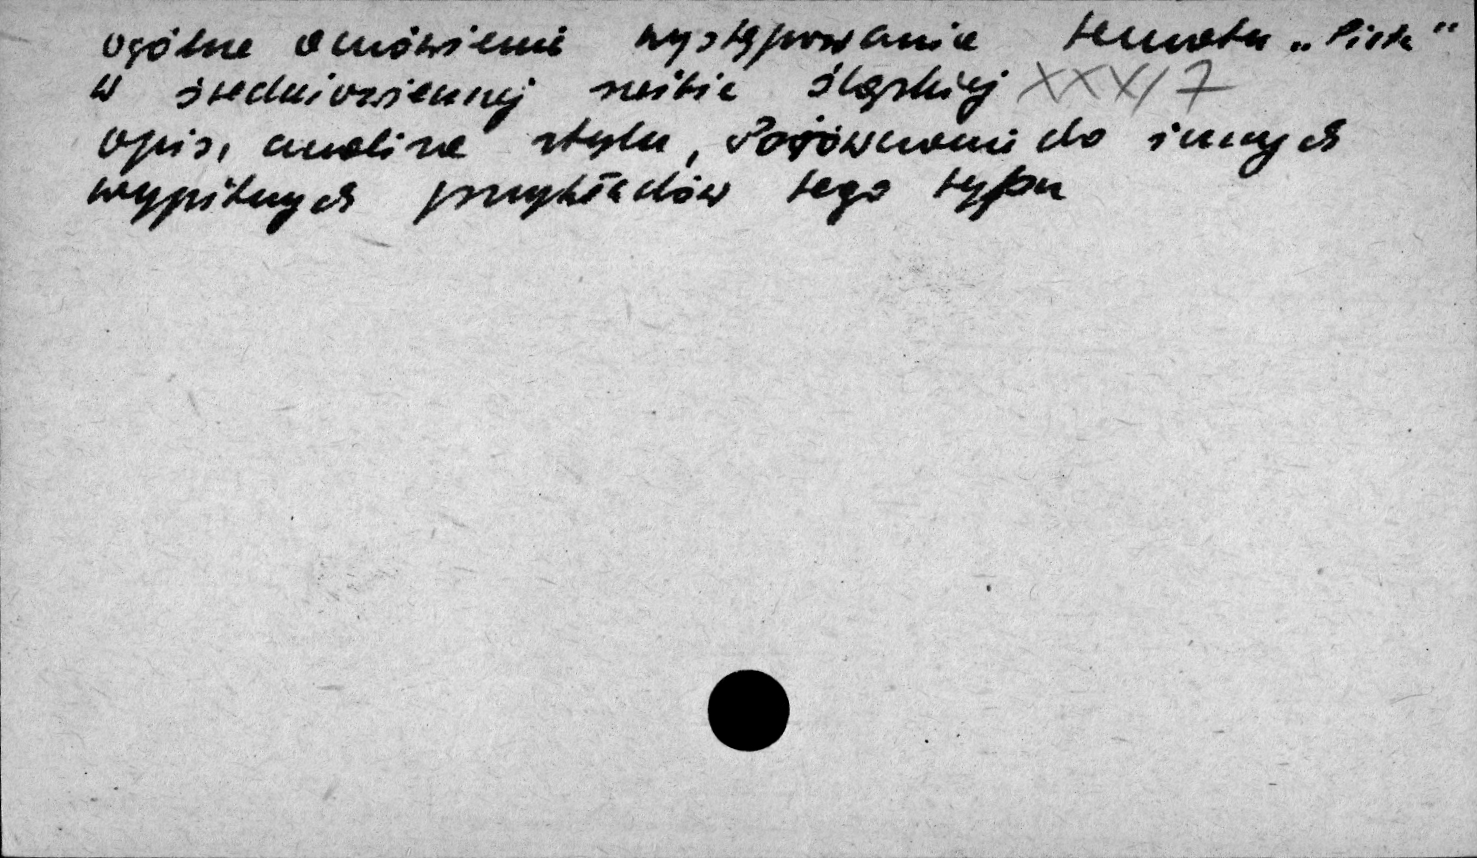 ogólne omówienie występowania tematu „Pieta"
w średniowiecznej rzeźbie śląskiej XXX/7
opis, analiza stylu, Porównanie do innych
wybitnych przykładów tego typu